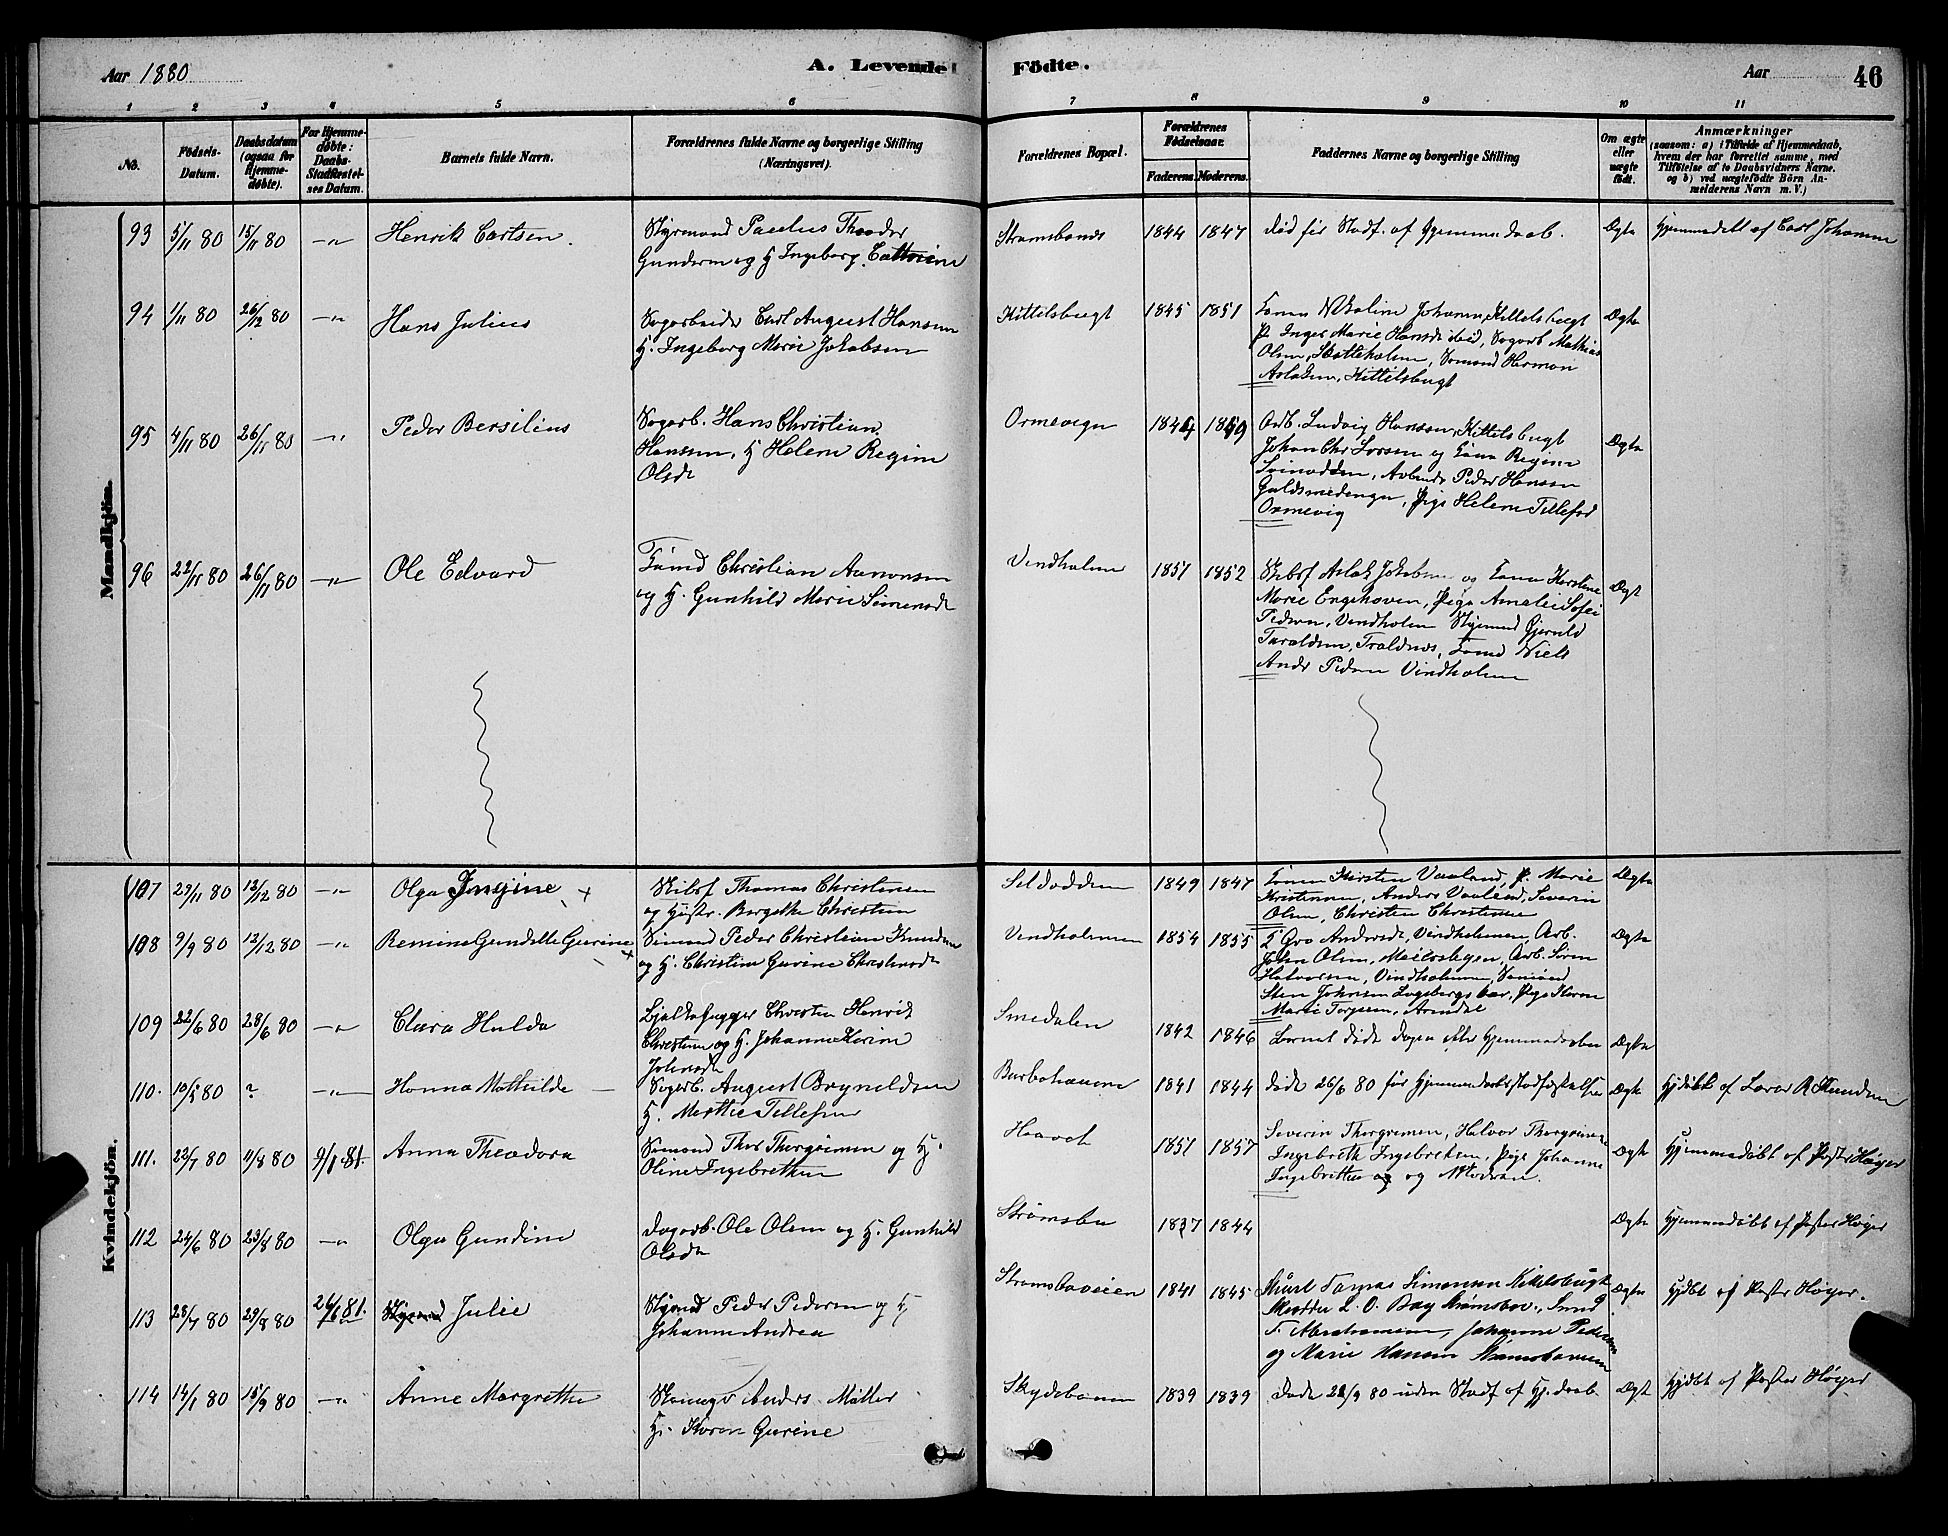 Aar 1880
A. Levende Födte.
Aar 46
1 2 3 4 5 6 7 8 9 10 11
No.
Födsels-Datum.
Daabsdatum (ogsaa for Hjemme-døbte).
For Hjemme-døbte: Daabs-Stadfæstel-ses Datum.
Barnets fulde Navn.
Forældrenes fulde Navne og borgerlige Stilling (Næringsvei).
Forældrenes Bopæl.
Forældrenes Födselsaar.
Faderens. Moderens.
Faddernes Navne og borgerlige Stilling
Om ægte eller uægte født.
Anmærkninger
(saasom: a) i Tilfælde af Hjemmedaab, hvem der har forrettet samme, med Tilföielse af to Daabsvidners Navne, og b) ved uægtefödte Börn An-melderens Navn m. V.)
Mandkjön.
93 5/11 80 15/11 80 —„— Henrik Cartsen. Styrmand Paulus Theodor
Gundersen og H Ingeborg Cathrine
Strømsbunes 1844 1847 død før Stadf. af Hjemmedaab. Ægte Hjemmedøbt af Carl Johannesen
94 1/11 80 26/12 80 —„— Hans Julius Sogarbeider Carl August Hansen
H. Ingeborg Marie Jakobsen
Kittilsbugt 1845 1851 Kone Nikoline Johannes, Kittelsbugt
P. Inger Marie Hansdt ibid, Sogarb Mathias
Olsen, Skotteholmen, Sømand Herman
Aslaksen, Kittilsbugt
Ægte
95 4/11 80 26/11 80 —„— Peder Bersilius Sogarb. Hans Christian
Hanssen, H Helene Regine
Olsdt
Ormevign Arb. Ludvig Hanssen, Kittelsbugt
Johan Chr Larsen og Kone Regine
Svinodden, Arbeids Peder Hansen
Guldsmedengen, Pige Helene Tellefsd
Ormevig
Ægte
96 22/11 80 26/11 80 —„— Ole Edvard Tømd Christian Aanonsen
og H. Gunhild Marie Simensdt
Vindholmen 1851 1852 Skibsf Aslak Jakobsen og Kone Karstene
Marie Engehaven, Pige Amalie Sofie
Pedersen, Vindholmen Styrmd Gjeruld
Taraldsen, Traldnes, Tømd Niels
Andr Pedersen Vindholmen
Ægt
Kvindekjön.
107 29/11 80 12/12 80 —„— Olga Jensine Skibsf Thomas Christensen
og Hustr. Bergethe Christensen
Seldodden 1849 1847 Konen Kirsten Vaaland, P. Marie
Kristensen, Anders Vaaland, Severin
Olsen, Christen Christensen
Ægte
108 9/9 80 12/12 80 —„— Remine Gundelle Gurine Sømand Peder Christian Knudsen
og H. Christine Gurine Christensdt
Vindholmen 1854 1855 K Gro Andersdt, Vindholmen, Arb.
John Olsen, Meiersbegen, Arb. Søren
Halvorsen, Vindholmen, Sømand
Sten Johnsen Langbergs bar, Pige Karen
Marie Torjesen, Arendal
Ægte
109 22/6 80 28/6 80 —„— Clara Hulda Bjelkehugger Christen Henrik
Christensen og H. Johanne Karine
Johnsdt
Smedalen 1842 1846 Barnet døde dagen efter Hjemmedaaben Ægte
110. 10/5 80 ? —„— Hanna Mathilde Sogarb. August Bryneldsen
H. Marthe Tellefsen
Barbohaven 1841 1844 døde 25/6 80 før Hjemmedaabsstadfæstelsen Ægte Hjdøbt af Lærer R Knudsen
111. 22/7 80 11/8 80 9/1 81. Anna Theodora Sømand Thor Thorgrimsen og H.
Oline Ingebretsen
Haavet 1851 1857 Severin Thorgrimsen, Halvor Thorgrimsen
Ingebreth Ingebretsen, Pige Johanne
Ingebretsen og og Moderen.
Ægte Hjemmedøbt af Pastor Høyer
112 24/6 80 23/8 80 —„— Olga Gundine Dagarb. Ole Olsen og H. Gunhild
Olsdt
Strømsbu 1837 1844 Ægte Hjemmedøbt af Pastor Høyer
113 23/7 80 29/8 80 26/6 81. Julie Styrmd Peder Pedersen og H
Johanne Andrea
Strømsboveien 1841 1845 Tomas Simonsen Kittelsbugt
L. O. Bay Strømsbo, Smed
T. Abrahamsen, Johanne Pedersen
og Marie Hansen Strømsboveien
Ægte Hjdbt af Pastor Høyer.
114 14/1 80 15/9 80 —„— Anne Margrethe Anders Møller
H. Karen Gurine
Skydebanen 1839 1839 Døde 21/9 80 uden Stadf af Hj. daab Ægt Hjdbt af Pastor Høyer